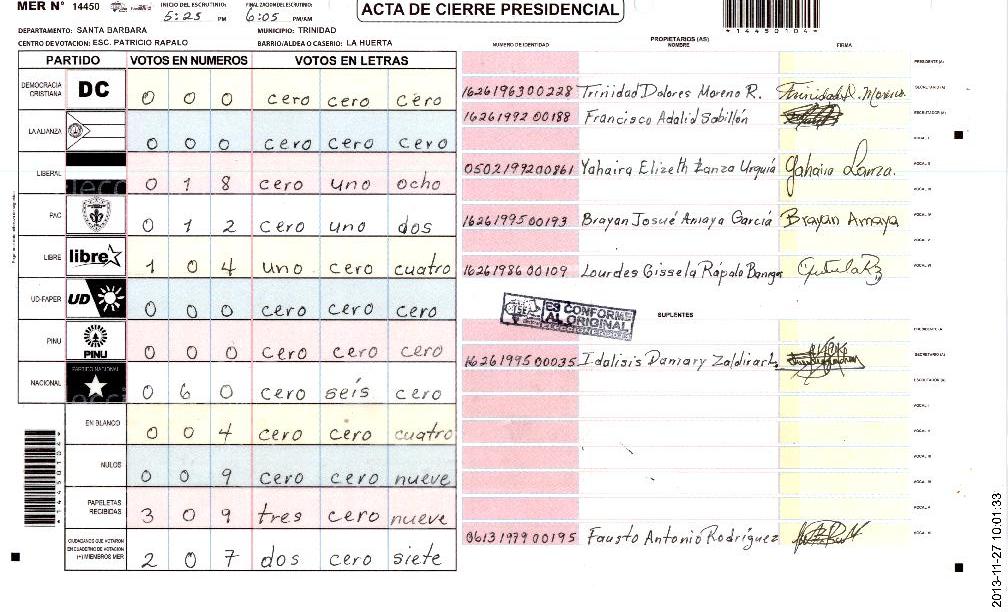 MER N° 14450
INICIO DEL ESCRUTINIO: 5:25 PM
FINALIZACION DEL ESCRUTINIO: 6:05 PM/AM
ACTA DE CIERRE PRESIDENCIAL
*14450104*
DEPARTAMENTO: SANTA BARBARA MUNICIPIO: TRINIDAD
CENTRO DE VOTACION: ESC. PATRICIO RAPALO BARRIO/ALDEA O CASERIO: LA HUERTA
PARTIDO VOTOS EN NUMEROS VOTOS EN LETRAS
DEMOCRACIA CRISTIANA DC 0 0 0 cero cero cero
LA ALIANZA 0 0 0 cero cero cero
LIBERAL 0 1 8 cero uno ocho
PAC 0 1 2 cero uno dos
LIBRE libre 1 0 4 uno cero cuatro
UD-FAPER UD 0 0 0 cero cero cero
PINU PINU 0 0 0 cero cero cero
NACIONAL PARTIDO NACIONAL 0 6 0 cero seís cero
EN BLANCO 0 0 4 cero cero cuatro
NULOS 0 0 9 cero cero nueve
PAPELETAS RECIBIDAS 3 0 9 tres cero nueve
CIUDADANOS QUE VOTARON EN CUADERNO DE VOTACION (+) MIEMBROS MER 2 0 7 dos cero siete
PROPIETARIOS (AS)
NUMERO DE IDENTIDAD NOMBRE FIRMA
PRESIDENTE (A)
1626196300228 Trinidad Dolores Moreno R. Trinidad D. Moreno SECRETARIO (A)
1626199200188 Francisco Adalid Sabillón ESCRUTADOR (A)
VOCAL I
0502199200861 Yahaira Elizeth Lanza Urquiá Yahaira Lanza. VOCAL II
VOCAL III
1626199500193 Brayan Josué Amaya García Brayan Amaya VOCAL IV
VOCAL V
1626198600109 Lourdes Gissela Rápalo VOCAL VI
TSE ES CONFORME AL ORIGINAL
SUPLENTES
PRESIDENTE (A)
1626199500035 Idalisis Damary SECRETARIO (A)
ESCRUTADOR (A)
VOCAL I
VOCAL II
VOCAL III
0613197900195 Fausto Antonio Rodríguez
2013-11-27 10:01:33